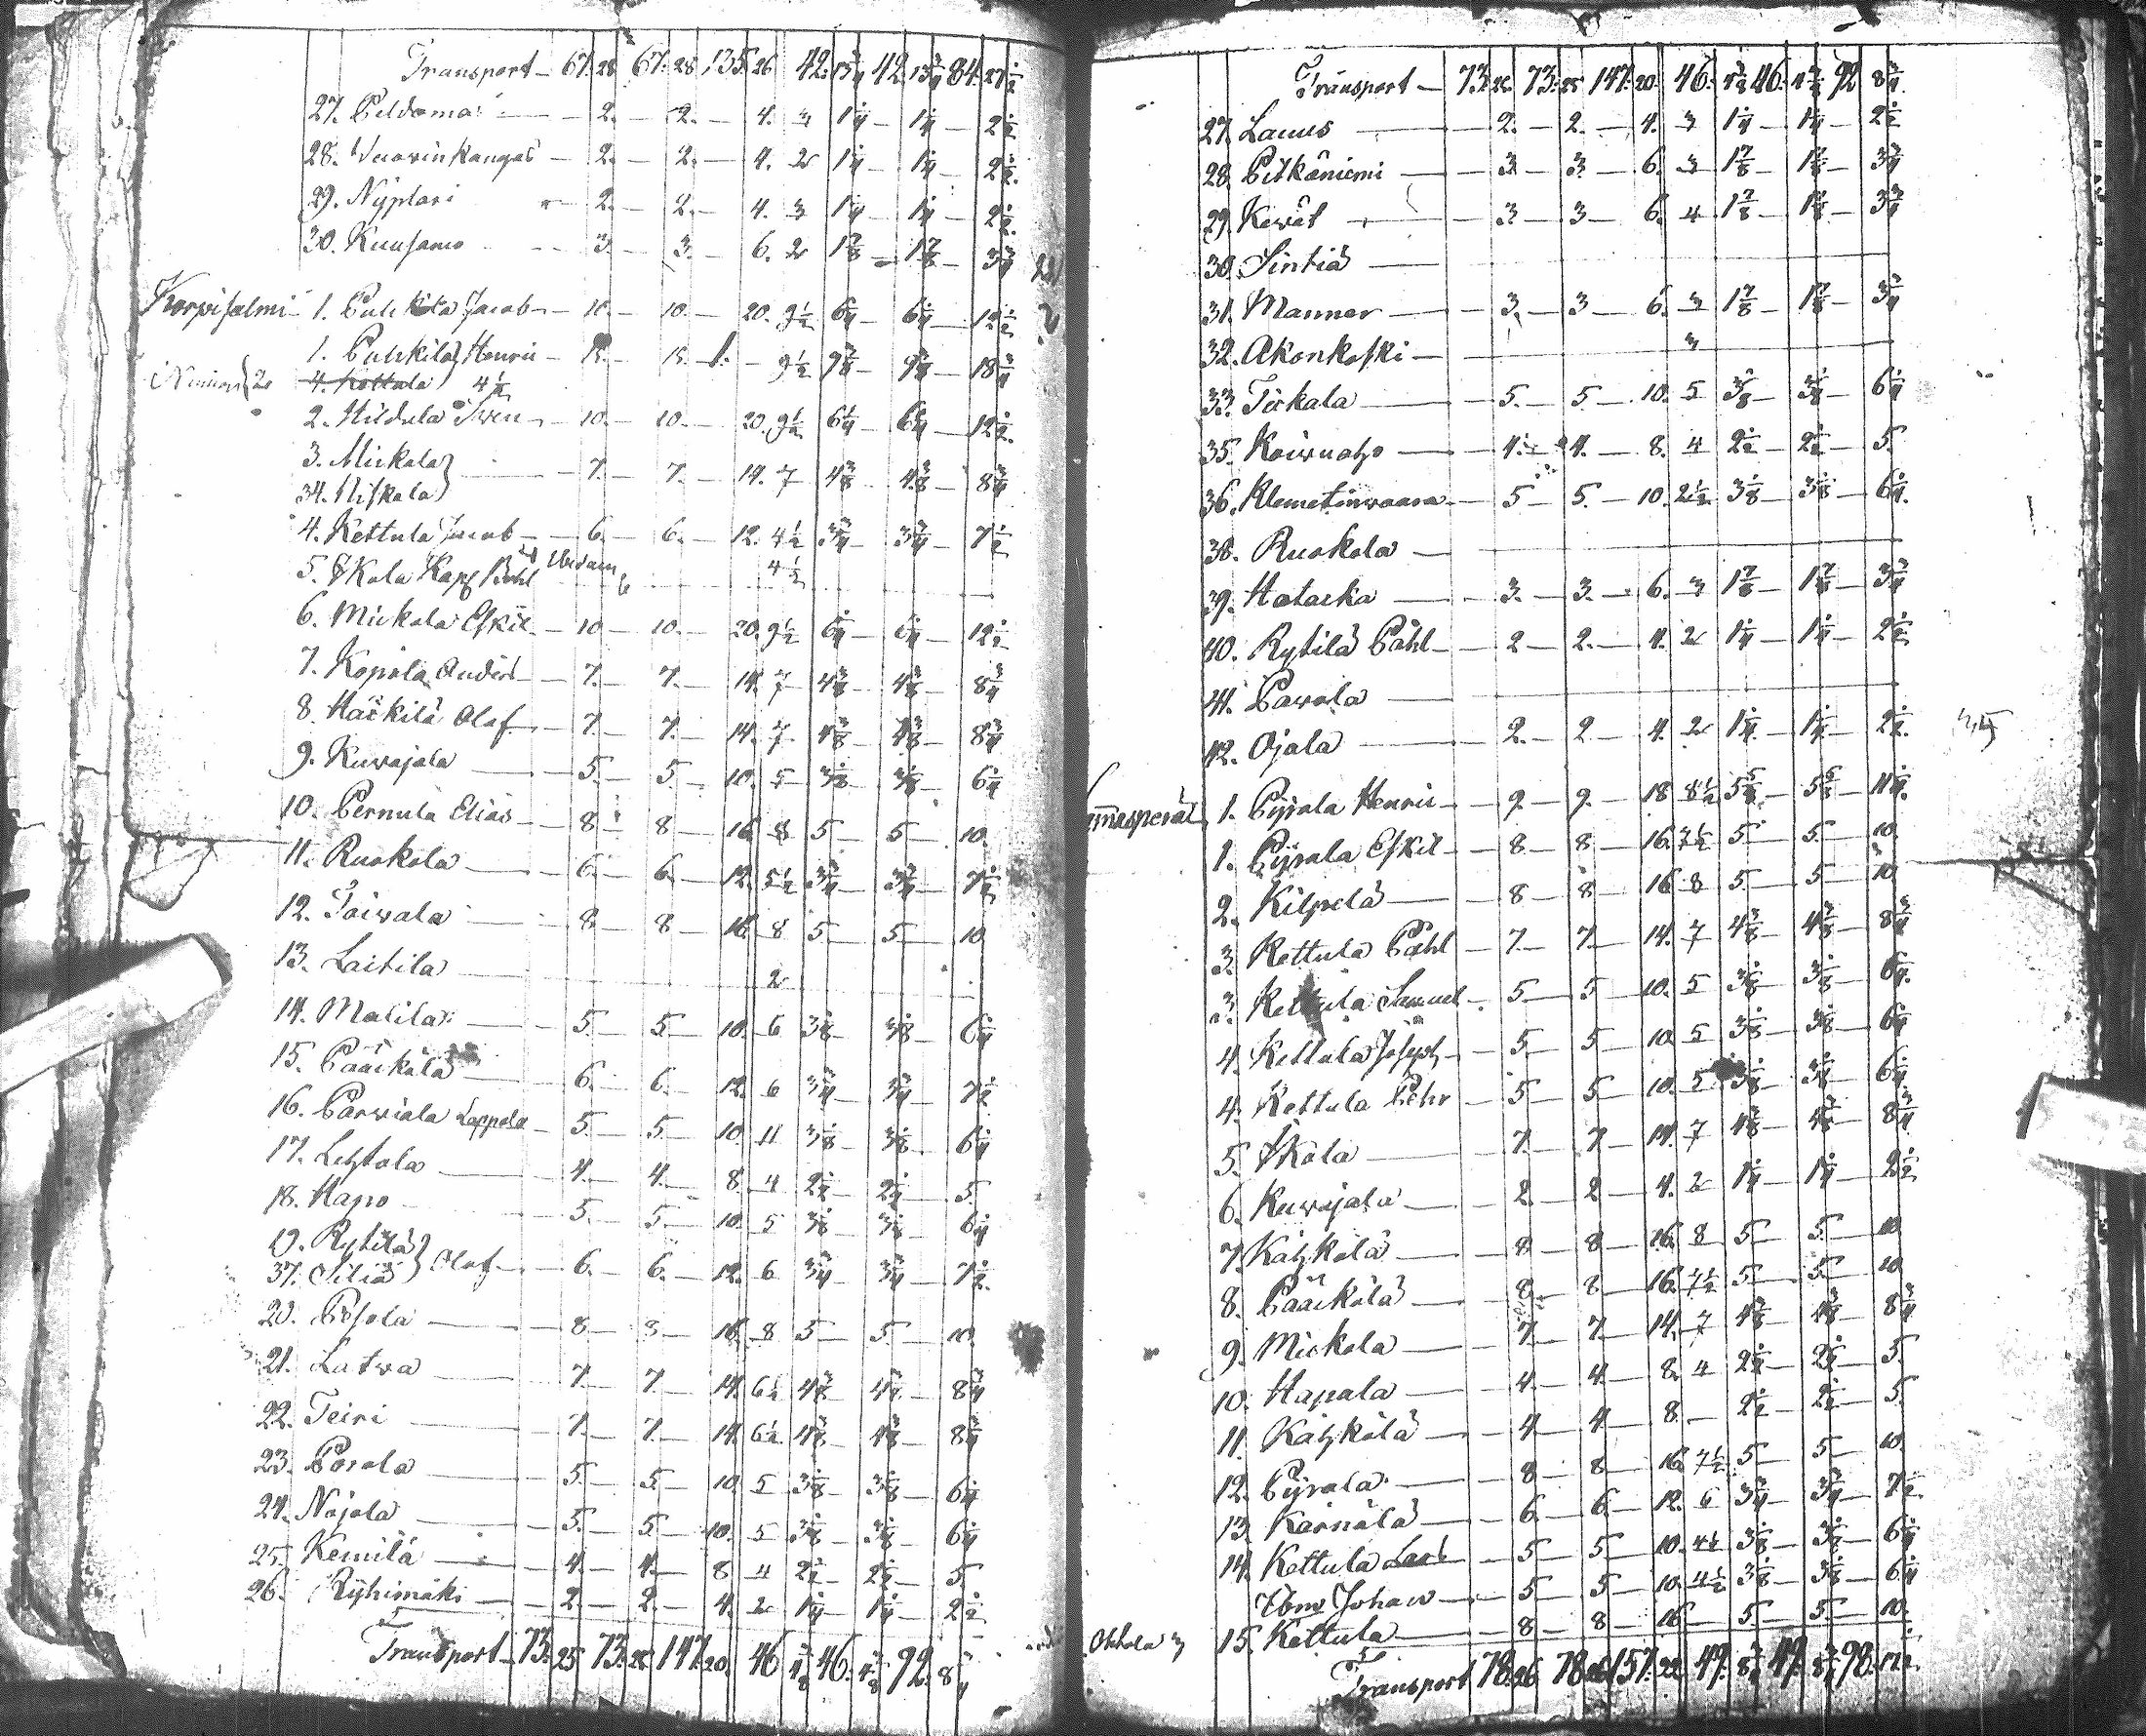 Transport — 67. 28 67. 28 135. 26 42. 13 3/4 42. 13 3/4 84. 27 1/2
27. Peldoma — 2. — 2. — 4. 3 1 1/4 — 1 1/4 — 2 1/2
28. Vuorinkangas — 2. — 2. — 4. 2 1 1/4 — 1 1/4 — 2 1/2
29. Nÿplari 2. — 2. — 4. 3 1 1/4 — 1 1/4 — 2 1/2
30. Kuusamo — 3. — 3. — 6. 2 1 7/8 — 1 7/8 — 3 3/4
Korpisalmi 1. Puhkila Jacob — 10. — 10. — 20. 9 1/2 6 1/4 — 6 1/4 — 12 1/2
1. Puhkila Henric — 15. — 15. 1. — 9 1/2 9 3/8 — 9 3/8 — 18 3/4
4. Kottala 4 1/2
2. Hildula Sven — 10. — 10. — 20. 9 1/2 6 1/4 — 6 1/4 — 12 1/2
3. Mickola — 7. — 7. — 14. 7 4 3/8 — 4 3/8 — 8 3/4
34. Hiskala
4. Kettula Jacob — 6. — 6. — 12. 4 1/2 3 3/4 — 3 3/4 — 7 1/2
5. Ykola 4 1/2
6. Mickola Eskil — 10 — 10. — 20. 9 1/2 6 1/4 — 6 1/4 — 12 1/2
7. Kopola Anders — 7. — 7. — 14. 7 4 3/8 — 4 3/8 — 8 3/4
8. Häckilä Olof — 7. — 7. — 14. 7 4 3/8 — 4 3/8 — 8 3/4
9. Kuvajala — 5. — 5. — 10. 5 3 1/8 — 3 1/8 — 6 1/4
10. Pernula Elias — 8 — 8 — 16. 8 5 — 5 — 10.
11. Ruokola — 6. — 6. — 12. 5 1/2 3 3/4 — 3 3/4 — 7 1/2
12. Toivala — 8 — 8 — 16. 8 5 — 5 — 10
13. Laitila — 2
14. Malila — 5. — 5. — 10. 6 3 1/8 — 3 1/8 — 6 1/4
15. Pääckölä — 6. — 6. — 12. 6 3 3/4 — 3 3/4 — 7 1/2
16. Parviala Leppola — 5. — 5. — 10. 11 3 1/8 — 3 1/8 — 6 1/4
17. Lehtola — 4. — 4. — 8. 4 2 1/2 — 2 1/2 — 5.
18. Hapo — 5. — 5. — 10. 5 3 1/8 — 3 1/8 — 6 1/4
19. Rytilä
37. Siliä } Olof — 6. — 6. — 12. 6 3 3/4 — 3 3/4 — 7 1/2
20. Pösola — 8 — 8 — 16. 8 5 — 5 — 10.
21. Latva — 7. — 7. — 14. 6 1/2 4 3/8 — 4 3/8 — 8 3/4
22. Teiri — 7. — 7. — 14. 6 1/2 4 3/8 — 4 3/8 — 8 3/4
23. Porola — 5. — 5. — 10. 5 3 1/8 — 3 1/8 — 6 1/4
24. Nojola — 5. — 5. — 10. 5 3 1/8 — 3 1/8 — 6 1/4
25. Kemilä — 4. — 4. — 8 4 2 1/2 — 2 1/2 — 5
26. Ryhimäki — 2. — 2. — 4. 2 1 1/4 — 1 1/4 — 2 1/2
Transport — 73. 25 73. 25 147. 20. 46 46. 92. 8 3/4
Transport — 73. 25 73. 25 147. 20. 46. 46. 92 8 3/4
27. Lauus — 2. — 2. — 4. 3 1 1/4 — 1 1/4 — 2 1/2
28. Pitkäniemi — 3 — 3. — 6. 3 1 7/8 — 1 7/8 — 3 3/4
29. Kevät — 3 — 3 — 6. 4 1 7/8 — 1 7/8 — 3 3/4
30. Sintiä —
31. Manner — 3. — 3 — 6. 3 1 7/8 — 1 7/8 — 3 3/4
32. Akonkoski — 3
33. Tickala — 5. — 5. — 10. 5 3 1/8 — 3 1/8 — 6 1/4
35. Koivuaho — 4. — 4. — 8. 4 2 1/2 — 2 1/2 — 5.
36. Klemetinvaara — 5 — 5. — 10. 2 1/2 3 1/8 — 3 1/8 — 6 1/4
38. Ruokola —
39. Hatacka — 3. — 3. — 6. 3 1 7/8 — 1 7/8 — 3 3/4
40. Rytilä Påhl — 2 — 2. — 4. 2 1 1/4 — 1 1/4 — 2 1/2
41. Pavola —
42. Ojala — 2. — 2 — 4. 2 1 1/4 — 1 1/4 — 2 1/2
1. Pyrola Henric — 9 — 9. — 18 8 1/2 5 5/8 — 5 5/8 — 11 1/4
1. Pyrola Eskil — 8 — 8 — 16. 7 1/2 5 — 5 — 10
2. Kilpelä — 8 — 8 — 16 8 5 — 5 — 10
3. Kettula Påhl — 7 — 7. — 14. 7 4 3/8 — 4 3/8 — 8 3/4
3. Kettula Samuel — 5 — 5 — 10. 5 3 1/8 — 3 1/8 — 6 1/4
4. Kettula Joseph — 5 — 5 — 10. 5 3 1/8 — 3 1/8 — 6 1/4
4. Kettula Pehr — 5 — 5 — 10. 5 3 1/8 — 3 1/8 — 6 1/4
5. Ykola — 7. — 7 — 14. 7 4 3/8 — 4 3/8 — 8 3/4
6. Kuvajala — 2 — 2 — 4. 2 1 1/4 — 1 1/4 — 2 1/2
7. Kähkölä — 8 — 8 — 16. 8 5 — 5 — 10
8. Pääckölä — 8. — 8 — 16. 7 1/2 5 — 5 — 10
9. Mickola — 7. — 7. — 14. 7 4 3/8 — 4 3/8 — 8 3/4
10. Hapala — 4. — 4. — 8. 4 2 1/2 — 2 1/2 — 5.
11. Kähkölä — 4 — 4. — 8. — 2 1/2 — 2 1/2 — 5.
12. Pyrola — 8 — 8 — 16 7 1/2 5 — 5 — 10.
13. Karnälä — 6 — 6. — 12. 6 3 3/4 — 3 3/4 — 7 1/2
14. Kettula Lars — 5 — 5 — 10. 4 1/2 3 1/8 — 3 1/8 — 6 1/4
Johan — 5 — 5 — 10. 4 1/2 3 1/8 — 3 1/8 — 6 1/4
15. Kettula — 8 — 8 — 16 — 5 — 5 — 10.
Transport 78. 26 78. 26 157. 22 49. 49. 98.